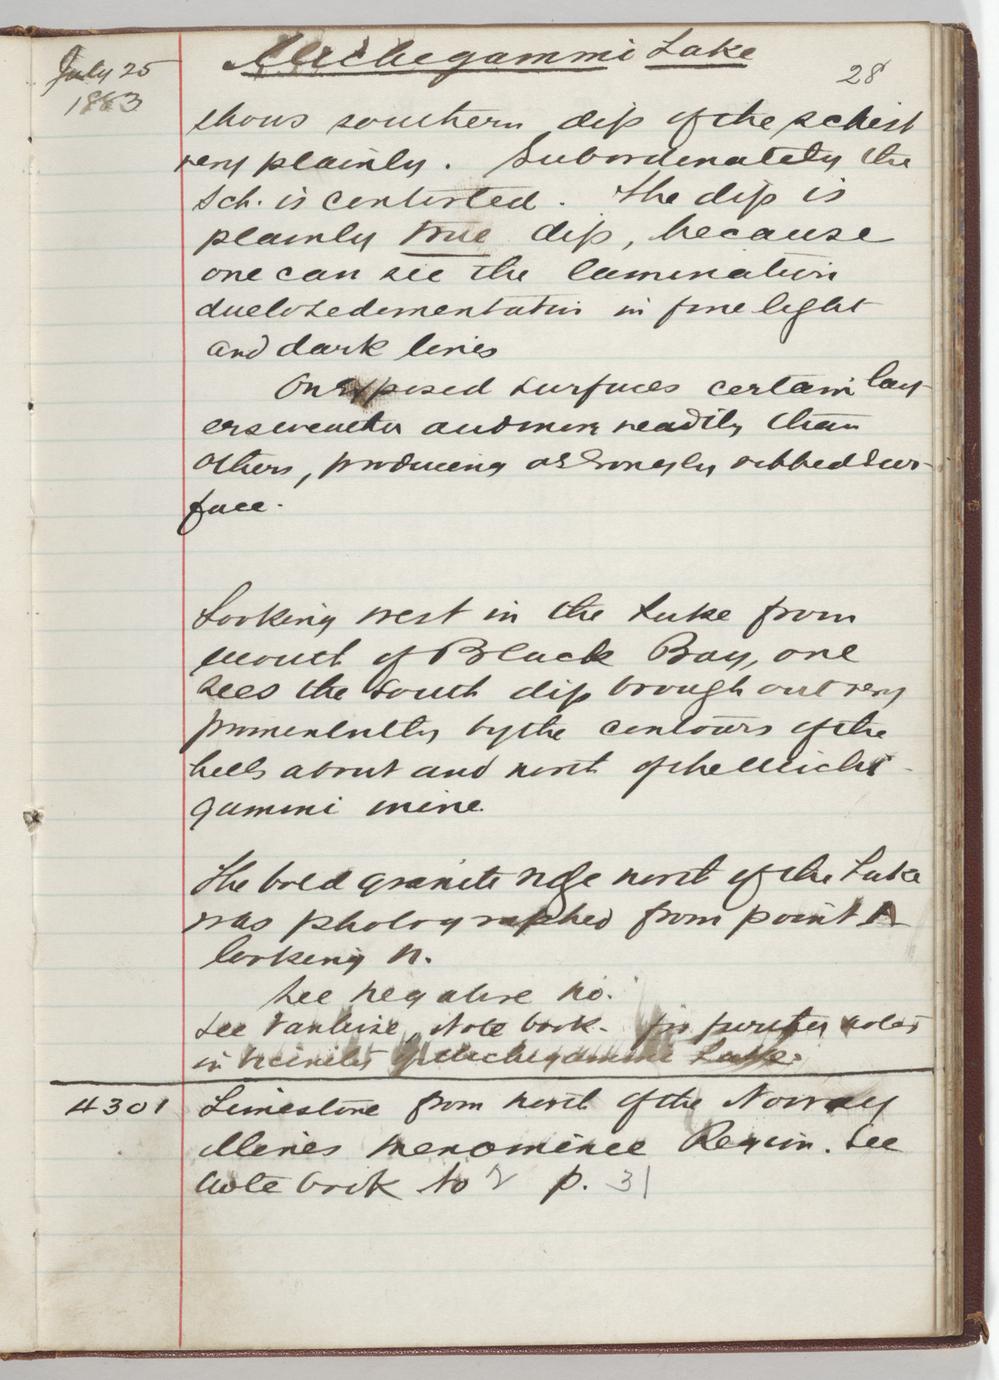 July 25
1883
Michegammi Lake
28
shows southern dip of the schist
very plainly. Subordinately the
Sch. is contorted. The dip is
plainly true dip, because
one can see the lamination
due to sedimentation in fine light
and dark lines
On exposed surfaces certain lay-
ers weather out more readily than
others, producing a strongly ribbed sur-
face.
Looking west in the Lake from
mouth of Black Bay, one
sees the south dip brough out very
prominently by the contours of the
hills about and north of the Michi-
gammi mine
The bold granite ridge north of the Lake
was photographed from point A
looking N.
See negative No.
See Vanhise Note book. for further notes
in vicinity of Michegammi Lake.
4301
Limestone from north of the Norway
Mines Menominee Region. See
Note book No 2 p. 31